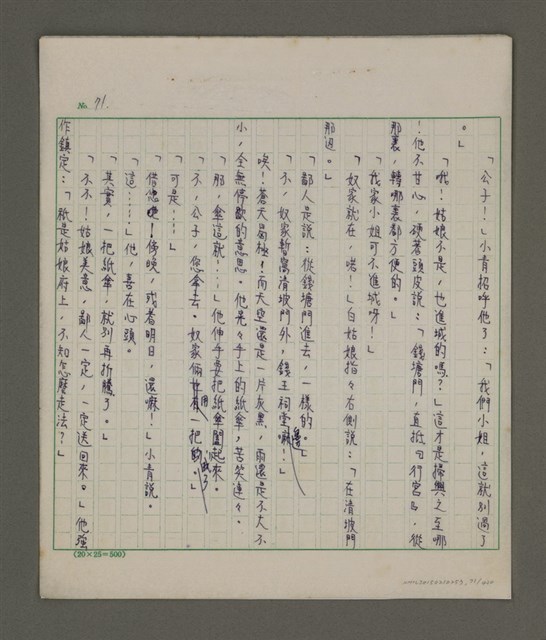 No. 71.
「公子！」小青招呼他了：「我們小姐，這就別過了
。」
「哦！姑娘不是，也進城的嗎？」這才是掃興之至哪
！他不甘心，硬著頭皮說：「錢塘門，直抵『行宮』，從
那裏，轉哪裏都方便的。」
「我家小姐可不進城呀！」
「奴家就在，喏！」白姑娘指々右側說：「在清坡門
那邊。」
「鄙人是說：從錢塘門進去，一樣的。」
「不，奴家暫寓清坡門外，錢王祠堂邊嘛！」
唉！蒼天曷極！向天空還是一片灰黑，雨還是不大不
小，全無停歇的意思。他晃々手上的紙傘，苦笑連々。
「那，傘這就⋯」他伸手要把紙傘闔起來。
「不，公子，您傘去。奴家倆用一把成了。」
「可是⋯⋯」
「借您吧！傍晚，或者明日，還嘛！」小青說。
「這⋯⋯」他，喜在心頭。
「其實，一把紙傘，就別再折騰了。」
「不不！姑娘美意，鄙人一定，一定送回來。」他強
作鎮定：「祇是姑娘府上，不知怎麼走法？」
(20×25=500)